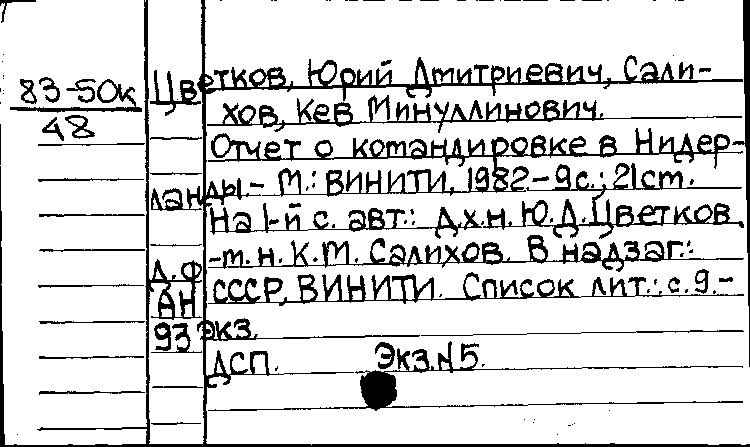 83-50к Цветков, Юрий Дмитриевич, Сали-
48 хов, Кев Минуллинович.
Отчет о командировке в Нидер-
ланды. - М.: ВИНИТИ, 1982. - 9с.; 21см.
На 1-й с. авт.: д.х.н. Ю.Д. Цветков,
д.ф.-т.н. К.М. Салихов. В надзаг.:
АН СССР, ВИНИТИ. Список лит.: с. 9. -
93 экз.
ДСП. Экз. №5.